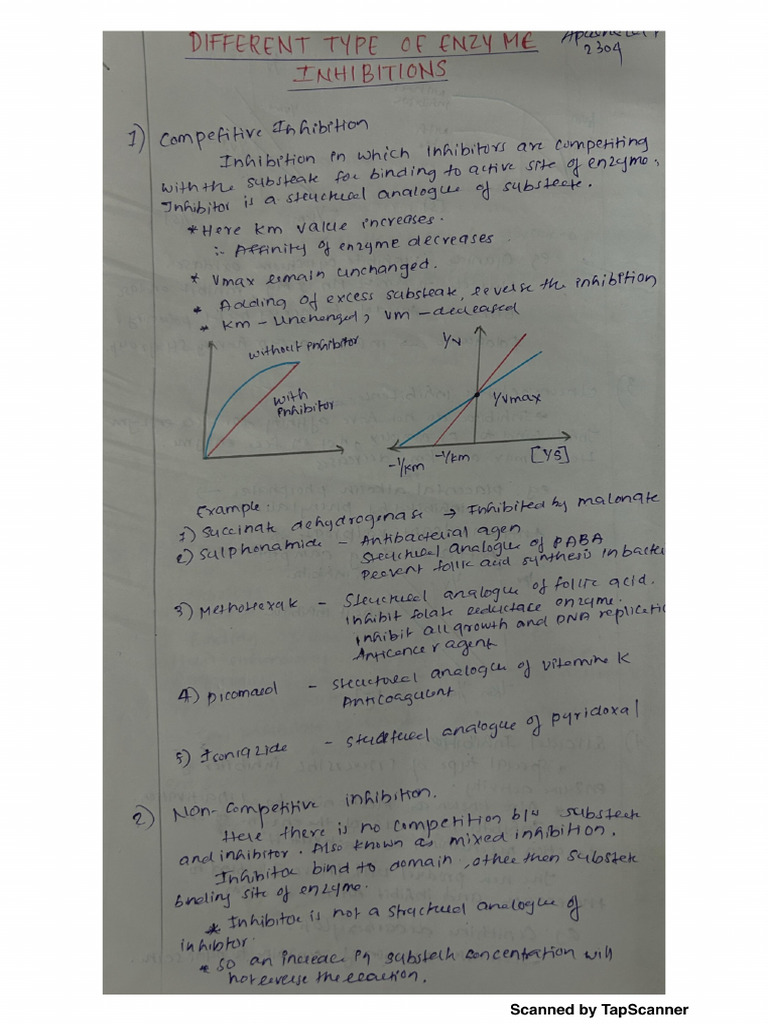 DIFFERENT TYPE OF ENZYME
2304
INHIBITIONS
1) Competitive Inhibition
Inhibition in which inhibitors are competiting
with the substrate for binding to active site of enzyme.
Inhibitor is a structural analogue of substrate.
* Here km value increases.
:- Affinity of enzyme decreases.
* Vmax remain unchanged.
* Adding of excess substrate, reverse the inhibition
* km - Unchanged, vm - decreased
without inhibitor
with
inhibitor
1/v
1/vmax
-1/km -1/km [1/s]
Example:
1) Succinate dehydrogenase → Inhibited by malonate
2) Sulphonamide - Antibacterial agen
Structural analogue of PABA
Prevent folic acid synthesis in bacte
3) Methotrexate - Structural analogue of follic acid.
inhibit folate reductase enzyme.
Inhibit all growth and DNA replicatio
Anticancer agent
4) Dicomarol - structural analogue of vitamine K
Anticoagulant
5) Isoniazide - structural analogue of pyridoxal
2) Non-competitive inhibition.
Here there is no competition b/w substrate
and inhibitor. Also known as mixed inhibition.
Inhibitor bind to domain, other then substrate
binding site of enzyme.
* Inhibitor is not a structural analogue of
inhibitor.
* so an increase in substrate concentration will
not reverse the reaction.
Scanned by TapScanner